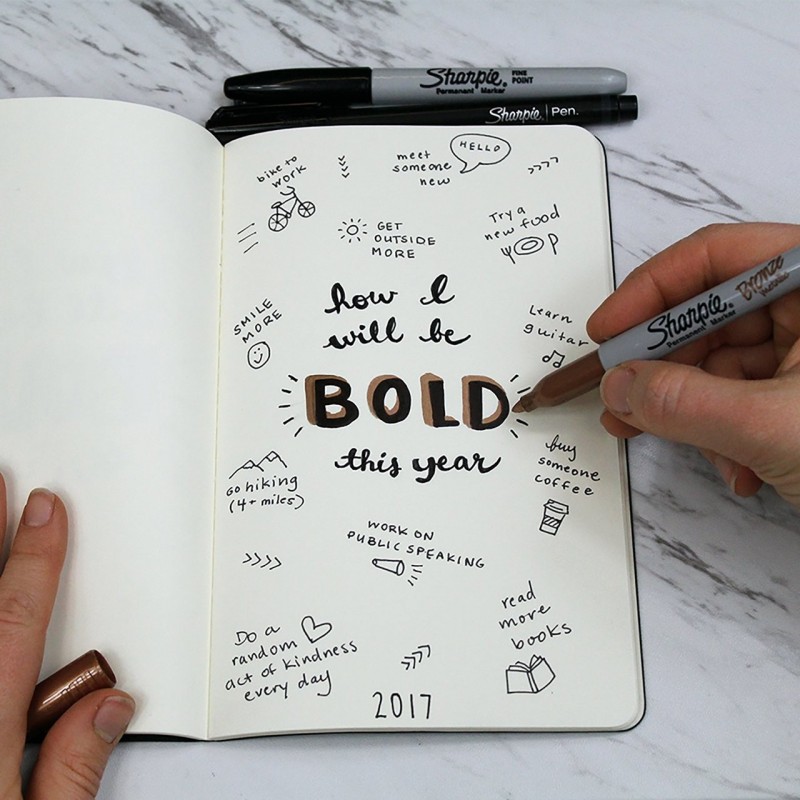 Sharpie. FINE POINT
Permanent Marker
Sharpie. Pen.
bike to
work
meet
someone
new
HELLO
GET
OUTSIDE
MORE
Try a
new food
SMILE
MORE
how I
will be
BOLD
this year
Learn
guitar
Sharpie
Permanent Marker
Bronze
go hiking
(4+ miles)
buy
someone
coffee
WORK ON
PUBLIC SPEAKING
Do a
random
act of kindness
every day
read
more
books
2017